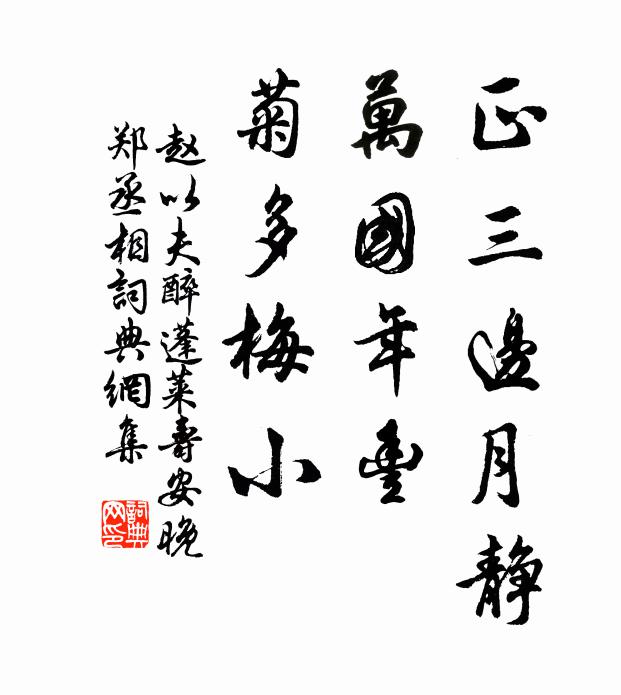 正三邊月靜
萬國年豐
菊多梅小
赵以夫醉蓬莱壽安晚
郑丞相詞典網集
詞典網印